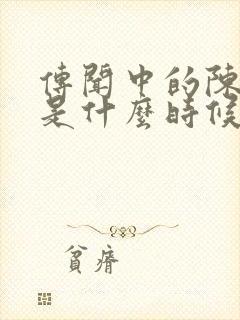 傳聞中的陳
是什麼時候
貧瘠